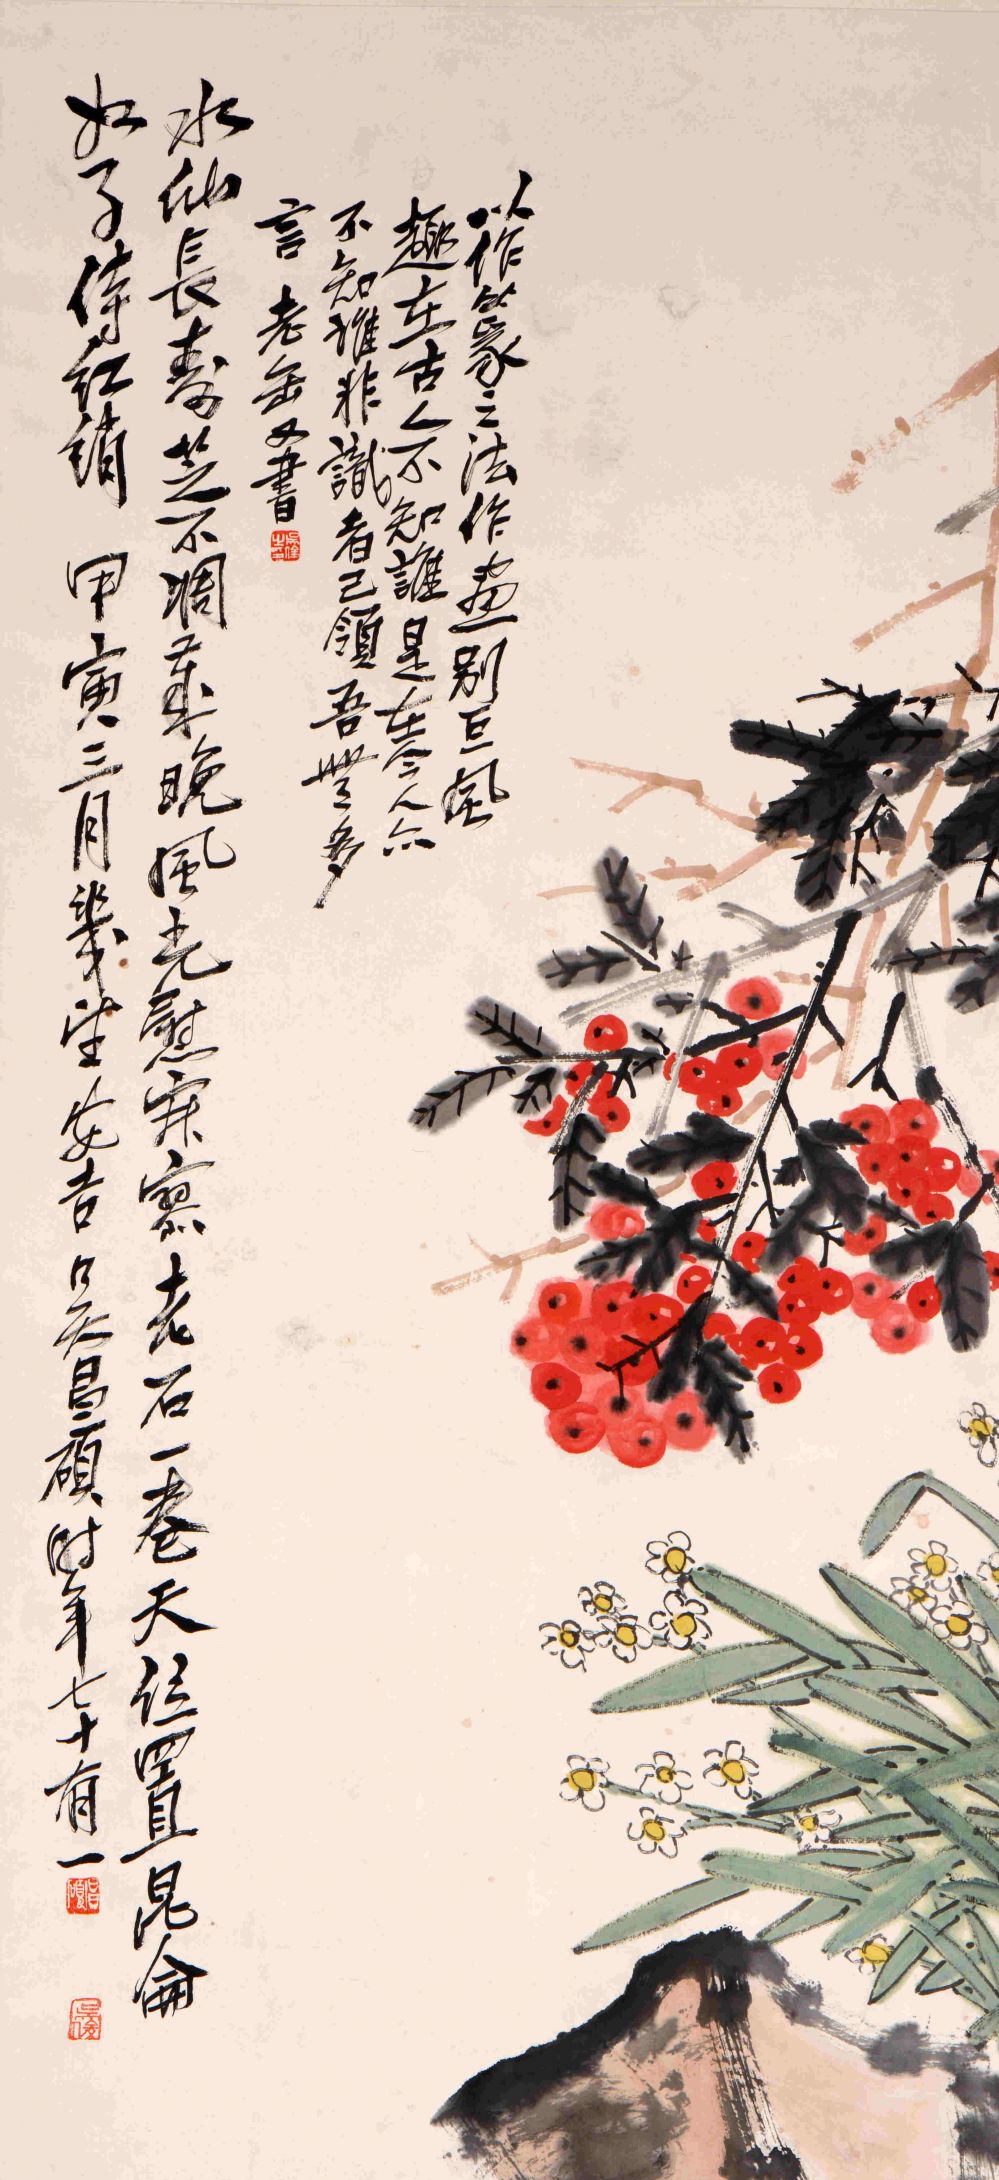 以作篆之法作画别具风
趣在古人不知谁是在今人亦
不知谁非識者已領吾無多
言 老缶又書
水仙長壽芝不凋歲晚風光慰寂寞老石一卷天位置昆侖
如子倚紅綃 甲寅三月幾望安吉吳昌碩時年七十有一